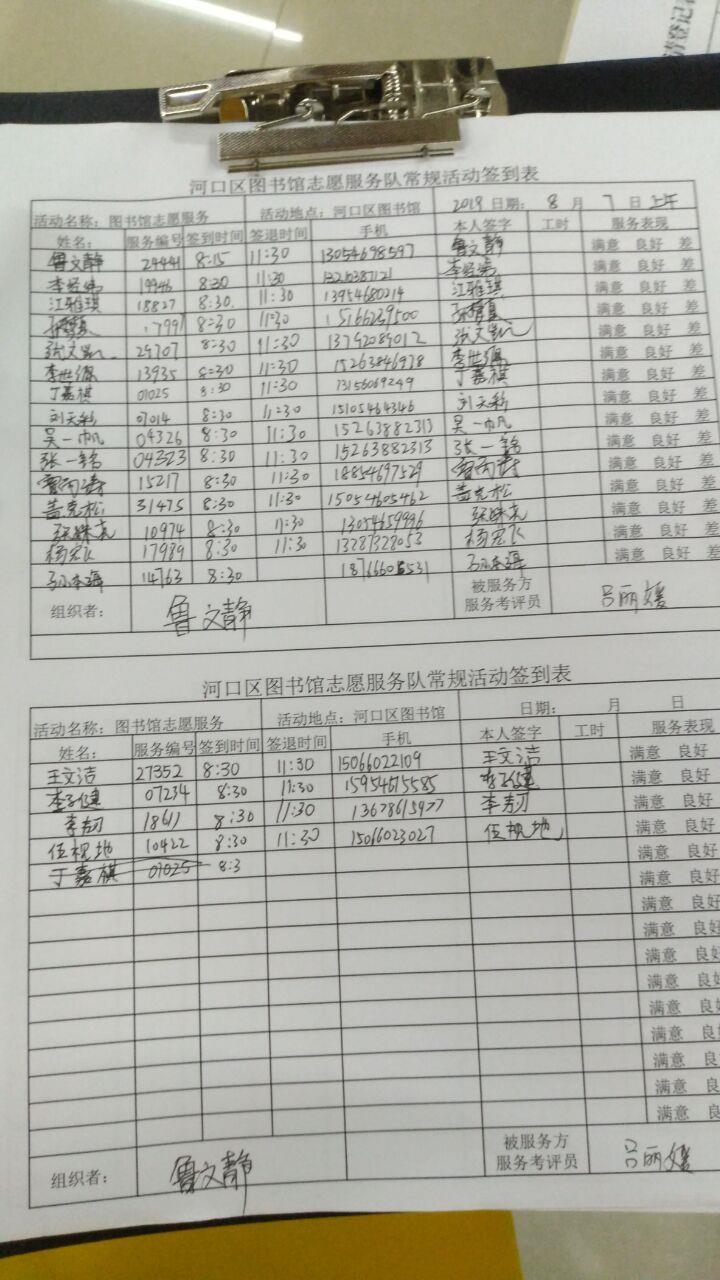 请登记
河口区图书馆志愿服务队常规活动签到表
活动名称：图书馆志愿服务 活动地点：河口区图书馆 2019 日期： 8 月 7 日 上午
姓名： 服务编号 签到时间 签退时间 手机 本人签字 工时 服务表现
鲁文静 24441 8:15 11:30 13054698597 鲁文静 满意 良好 差
李经纬 19946 8:30 11:30 李经纬 满意 良好 差
江雅琪 18827 8:30. 11:30 13954680214 江雅琪 满意 良好 差
8:30 11:30 15166239500 满意 良好 差
张文凯 29707 8:30 11:30 张文凯 满意 良好 差
李世儒 13935 8:30 11:30 15263846978 李世儒 满意 良好 差
丁嘉祺 07025 8:30 11:30 13156069249 丁嘉祺 满意 良好 差
刘天彩 07014 8:30 11:30 15105464346 刘天彩 满意 良好 差
吴一帆 04326 8:30 11:30 15263882313 吴一帆 满意 良好 差
张一铭 04323 8:30 11:30 15263882313 张一铭 满意 良好 差
15217 8:30 11:30 18854697529 满意 良好 差
盖克松 31475 8:30 11:30 15054605462 盖克松 满意 良好 差
10974 8:30 11:30 13054659996 满意 良好 差
杨宏飞 17989 8:30 11:30 13287328053 杨宏飞 满意 良好 差
14763 8:30 满意 良好 差
组织者： 鲁文静 被服务方 吕丽媛
服务考评员
河口区图书馆志愿服务队常规活动签到表
活动名称：图书馆志愿服务 活动地点：河口区图书馆 日期： 月 日
姓名： 服务编号 签到时间 签退时间 手机 本人签字 工时 服务表现
王文洁 27352 8:30 11:30 15066022109 王文洁 满意 良好
李子健 07234 8:30 11:30 15954675585 李子健 满意 良好
李韧 18617 8:30 11:30 13678615977 李韧 满意 良好
伍枧地 10422 8:30 11:30 15066023027 伍枧地 满意 良好
丁嘉祺 07025 8:3 满意 良好
满意 良好
满意 良好
满意 良好
满意 良好
满意 良好
满意 良好
满意 良好
满意 良好
满意 良好
满意 良好
组织者： 鲁文静 被服务方 吕丽媛
服务考评员